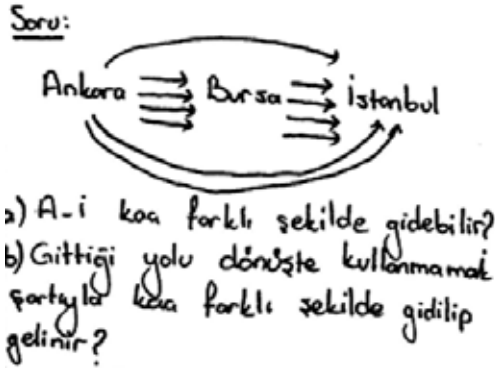 Soru:
Ankara Bursa İstanbul
a) A-i kaa farklı şekilde gidebilir?
b) Gittiği yolu dönüşte kullanmamak
şartıyla kaa farklı şekilde gidilip
gelinir?